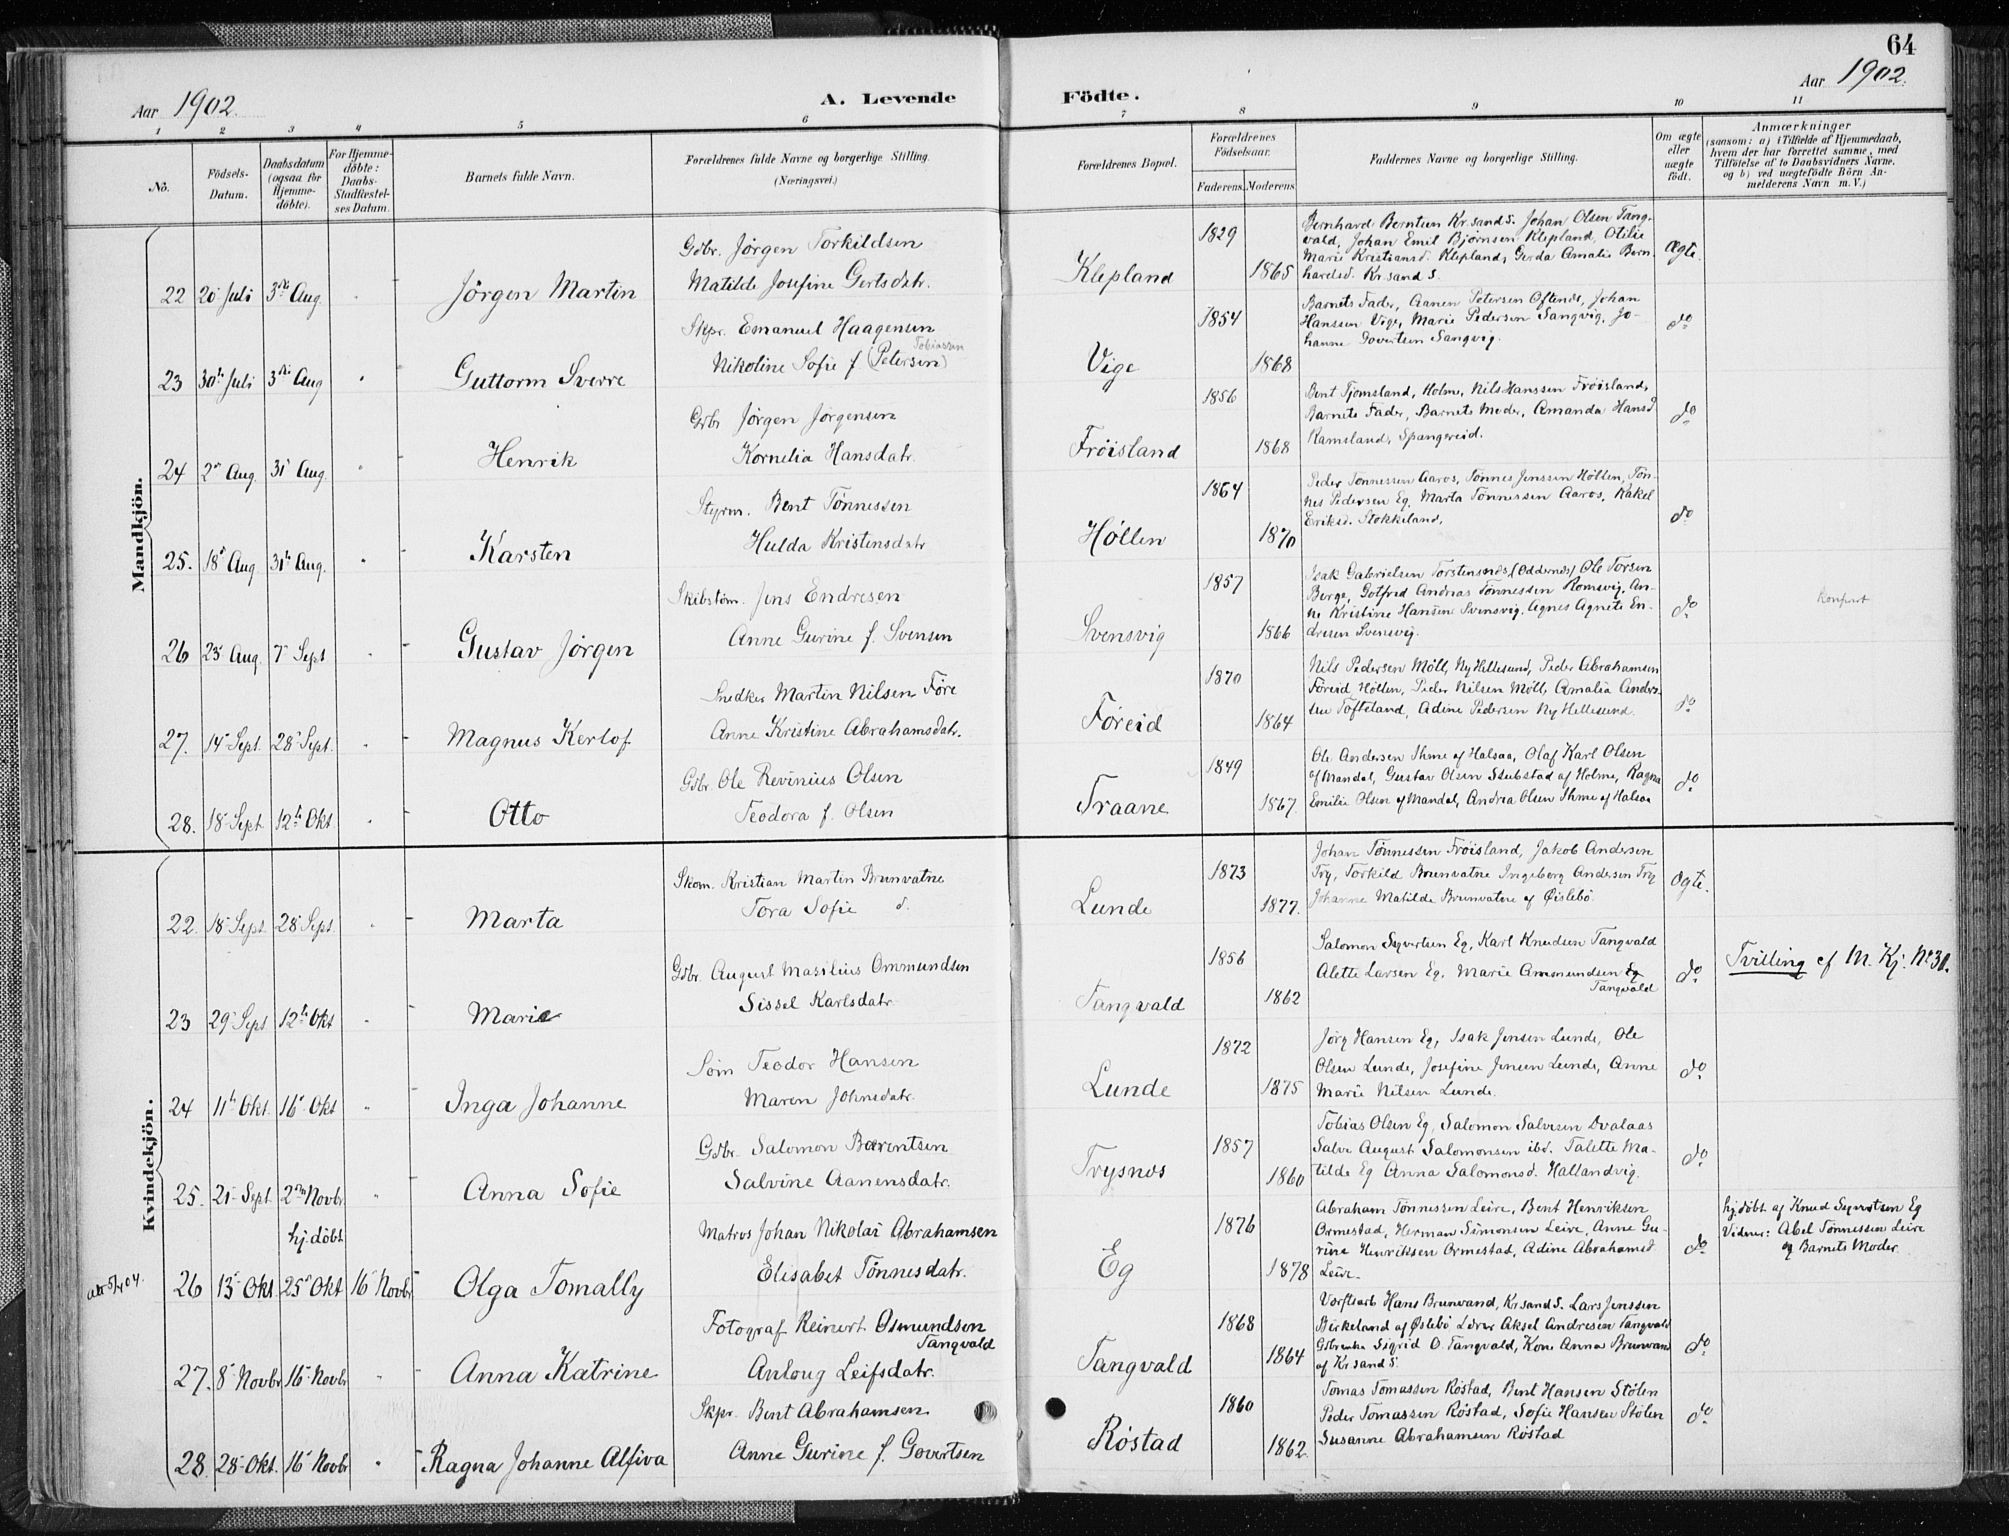 64
Aar 1902.
A. Levende Födte.
Aar 1902.
1 2 3 4 5 6 7 8 9 10 11
No.
Födsels-Datum.
Daabsdatum (ogsaa for Hjemme-döbte).
For Hjemme-döbte: Daabs-Stadfæstel-ses Datum.
Barnets fulde Navn.
Forældrenes fulde Navne og borgerlige Stilling.
(Næringsvei.)
Forældrenes Bopæl.
Forældrenes Födselsaar.
Faderens. Moderens.
Faddernes Navne og borgerlige Stilling.
Om ægte eller uægte födt.
Anmærkninger
(saasom: a) i Tilfælde af Hjemmedaab,
hvem der har forrettet samme, med
Tilföielse af to Daabsvidners Navne,
og b) ved uægtefödte Börn An-
melderens Navn m. V.)
Mandkjön.
22 20 Juli 3die Aug. - Jörgen Martin
Gdbr. Jörgen Torkildsen
Matilde Josefine Gertsdatr.
Klepland
1829
1865
Bernhard Berntsen Kr.sand S. Johan Olsen Tang-
vald, Johan Emil Bjørnsen Klepland, Otilie
Marie Kristiansd. Klepland, Gerda Amalie Bern-
hardsd. Kr.sand S.
Ægte.
23 30te Juli 3die Aug - Guttorm Sverre
Skpr. Emanuel Haagensen
Tobiassen
Nikoline Sofie f. (Petersen)
Vige
1854
1868
Barnets Fader, Aanen Petersen Oftenes, Johan
Hanssen Vige, Marie Pedersen Sangvig, Jo-
hanne Govertsen Sangvig.
do
24 2n Aug. 31 Aug. - Henrik
Grbr Jørgen Jørgensen
Kornelia Hansdatr.
Frøisland
1856
1868
Bent Tjomsland, Holme, Nils Hanssen Frøisland,
Barnets Fader, Barnets Moder, Amanda Hansd.
Ramsland, Spangereid.
do
25. 18 Aug 31te Aug. - Karsten
Styrm. Bent Tönnessen
Hulda Kristensdatr
Høllen
1864
1870
Peder Tønnessen Aaros, Tønnes Jenssen Høllen, Tøn-
nes Pedersen Eg, Marta Tønnessen Aaros, Rakel
Eriksd. Stokkeland.
do
26 23 Aug. 7 Sept - Gustav Jörgen
Skibstöm. Jens Endresen
Anne Gurine f. Svensen
Svensvig
1857
1866
Isak Gabrielsen Torstensnes, (Oddernes) Ole Torsen
Berge, Gotfred Andreas Tønnessen Romsvig, An-
ne Kristine Hansen Svensvig, Agnes Agnete En-
dresen Svensvig.
do
27. 14 Sept. 28 Sept. - Magnus Kerlof
Snedker Martin Nilsen Føre
Anne Kristine Abrahamsdatr.
Føreid
1870
1864
Nils Pedersen Møll, Ny Hellesund, Peder Abrahamsen
Føreid Høllen, Peder Nilsen Møll, Amalia Anders-
sen Tofteland, Adine Pedersen Ny Hellesund.
do
28. 18 Sept 12te Okt - Otto
Gdbr. Ole Revinius Olsen
Teodora f. Olsen
Traane
1849
1867.
Ole Andersen Ihme af Halsaa, Olaf Karl Olsen
af Mandal, Gustav Olsen Stubstad af Holme, Ragna
Emilie Olsen af Mandal, Andrea Olsen Ihme af Halsaa
do
Kvindekjön.
22. 18 Sept. 28 Sept. - Marta
Skom. Kristian Martin Brunvatne
Tora Sofie d.
Lunde
1873
1877.
Johan Tønnessen Frøisland, Jakob Andersen
Try, Torkild Brunvatne Ingeborg Andersen Try
Johanne Matilde Brunvatne af Øislebö.
Ægte.
23 29 Sept 12te Okt - Marie
Gdbr. August Masilius Ommundsen
Sissel Karlsdatr
Tangvald
1856
1862
Salomon Syvertsen Eg, Karl Knudsen Tangvald
Alette Larsen Eg. Marie Ammundsen Eg
Tangvald
do
Tvilling cf M. Kj. No 30.
24 11te Okt. 16 Okt - Inga Johanne
Søm Teodor Hansen
Maren Johnsdatr.
Lunde
1872
1875
Jørg Hansen Eg, Isak Jensen Lunde, Ole
Olsen Lunde, Josefine Jensen Lunde, Anne
Marie Nilsen Lunde.
do
25. 21 Sept. 2den Novbr - Anna Sofie
Gdbr. Salomon Berentsen
Salvine Aanensdatr.
Trysnes
1857
1860
Tobias Olsen Eg, Salomon Salvesen Dvalaas
Salve August Salomonsen ibd. Talette Ma-
tilde Eg Anna Salomonsd. Hallandvig.
do
hj.döbt
26 13 Okt. 25 Okt 16 Novbr Olga Tomally
Matros Johan Nikolai Abrahamsen
Elisabet Tönnesdatr.
Eg
1876
1878
Abraham Tønnessen Leire, Bent Henriksen
Ormestad, Herman Simonsen Leire, Anne Gu-
rine Henriksen Ormestad, Adine Abrahamsd
Leire.
do
hj.döbt af Knud Syvertsen Eg
Vidner: Abel Tønnessen Leire
og Barnets Moder.
27. 8 Novbr 16 Novbr - Anna Katrine
Fotograf Reinert Osmundsen
Tangvald
Anloug Leifsdatr.
Tangvald
1868
1864
Værftsarb Hans Brunvand, Kr.sand S. Lars Jenssen
Birkeland af Øslebö Lærer Aksel Andresen Tangvald
Gdbrenke Sigrid O. Tangvald, Kone Anna Brunvand
af Kr.sand S.
do
28. 28 Okt. 16 Novbr - Ragna Johanne Alfiva
Skpr. Bent Abrahamsen
Anne Gurine f. Govertsen
Røstad
1860
1862.
Tomas Tomassen Røstad, Bent Hansen Stølen
Peder Tomassen Røstad, Sofie Hansen Stølen
Susanne Abrahamsen Røstad
do